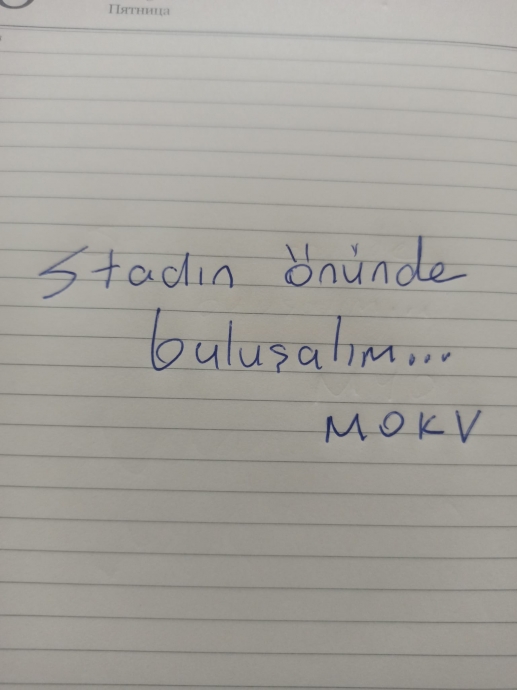 Пятница
Stadın önünde
buluşalım...
MOKV